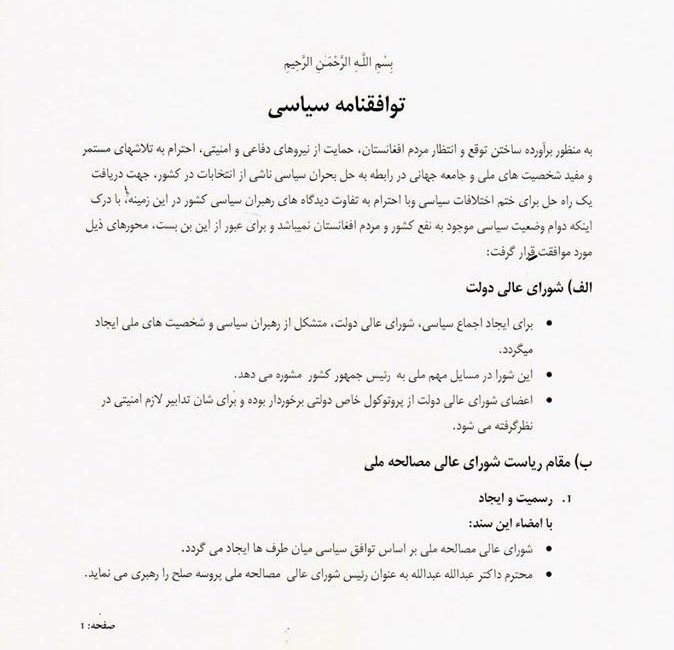 بِسْمِ اللَّـهِ الرَّحْمَـٰنِ الرَّحِيمِ
توافقنامه سیاسی
به منظور برآورده ساختن توقع و انتظار مردم افغانستان، حمایت از نیروهای دفاعی و امنیتی، احترام به تلاشهای مستمر
و مفید شخصیت های ملی و جامعه جهانی در رابطه به حل بحران سیاسی ناشی از انتخابات در کشور، جهت دریافت
یک راه حل برای ختم اختلافات سیاسی وبا احترام به تفاوت دیدگاه های رهبران سیاسی کشور در این زمینه، با درک
اینکه دوام وضعیت سیاسی موجود به نفع کشور و مردم افغانستان نمیباشد و برای عبور از این بن بست، محورهای ذیل
مورد موافقت قرار گرفت:
الف) شورای عالی دولت
• برای ایجاد اجماع سیاسی، شورای عالی دولت، متشکل از رهبران سیاسی و شخصیت های ملی ایجاد
میگردد.
• این شورا در مسایل مهم ملی به رئیس جمهور کشور مشوره می دهد.
• اعضای شورای عالی دولت از پروتوکول خاص دولتی برخوردار بوده و برای شان تدابیر لازم امنیتی در
نظرگرفته می شود.
ب) مقام ریاست شورای عالی مصالحه ملی
1. رسمیت و ایجاد
با امضاء این سند:
• شورای عالی مصالحه ملی بر اساس توافق سیاسی میان طرف ها ایجاد می گردد.
• محترم داکتر عبدالله عبدالله به عنوان رئیس شورای عالی مصالحه ملی پروسه صلح را رهبری می نماید.
صفحه: 1